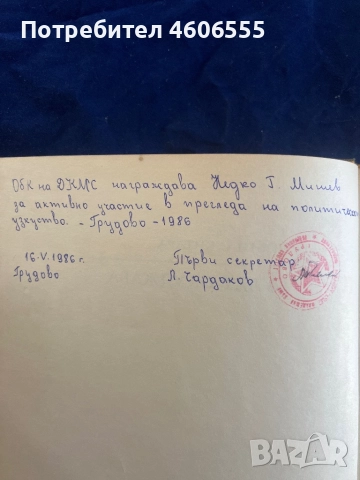 Потребител 4606555
ОбК на ДКМС награждава Недко Г. Мишев
за активно участие в прегледа на политическо
узкуство. - Грудово - 1986
16.V.1986 г. Първи секретар:
Грудово Л. Чардаков
BAZAR